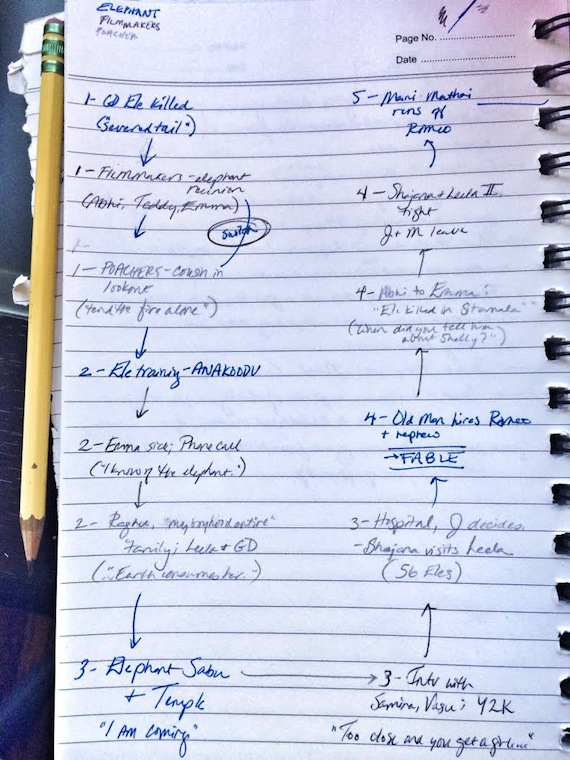 ELEPHANT
FILMMAKERS
POACHER
Page No.
Date
1- Ele killed
("severed tail")
1- Filmmakers - elephant
reunion
(Abhi, Teddy, Emma)
switch
1-
1- POACHERS - cousin in
lookout
("tend the fire alone")
2- Ele training - ANAKOODU
2- Emma sick; Phone call
("I know of the elephant.")
2- "my boyhood entire"
Family; Leela + GD
("...Earth consumes her.")
3- Elephant Sabu
+ Temple
"I am coming"
3- Intv with
Samina, Vasu; Y2K
"Too close and you get a
3- Hospital, J decides.
- Shajana visits Leela
(56 Eles)
4- Old Man hires Romeo
+ nephew
→FABLE
4- Abhi to Emma:
"Ele killed in
(When did you tell him
about Shelly?")
4- Shajana + Leela II
fight
J + M leave
5- Mani-Mathai
runs off
Romeo